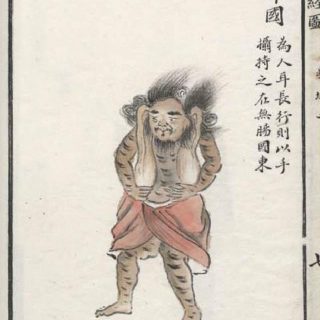 國
為人耳長行則以手
攝持之在無膓國東